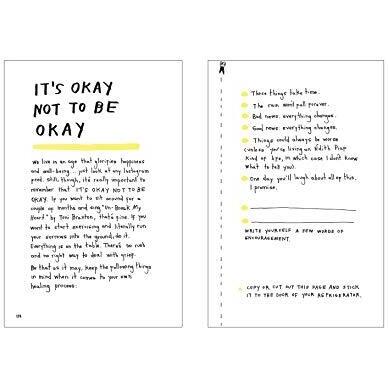 IT'S OKAY
NOT TO BE
OKAY
We live in an age that glorifies happiness
and well-being... just look at my Instagram
feed. still though, it's really important to
remember that IT'S OKAY NOT TO BE
OKAY. If you want to sit around for a
couple of months and sing "Un-Break My
Heart" by Toni Braxton, that's fine. If you
want to start exercising and literally run
your sorrows into the ground, do it.
Everything is on the table. There's no rush
and no right way to deal with grief.
Be that as it may, keep the following things
in mind when it comes to your own
healing process:
These things take time.
The rain won't fall forever.
Bad news: everything changes.
Good news: everything changes.
Things could always be worse
(unless you're living an Edith Piaf
kind of life, in which case I don't know
what to tell you).
One day you'll laugh about all of this,
I promise.
WRITE YOURSELF A FEW WORDS OF
ENCOURAGEMENT.
COPY OR CUT OUT THIS PAGE AND STICK
IT TO THE DOOR OF YOUR REFRIGERATOR.